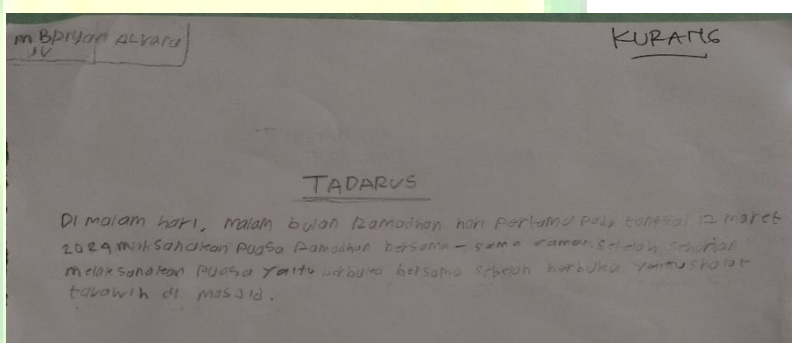 m Bpriyan ALvaro
IV
KURANG
TADARUS
Di malam hari, malam bulan Ramadhan hari pertama pada tanggal 12 maret
2024 melaksanakan puasa Ramadhan bersama - sama seharian
melaksanakan puasa yaitu berbuka bersama berbuka yaitu sholat
tarawih di masjid.